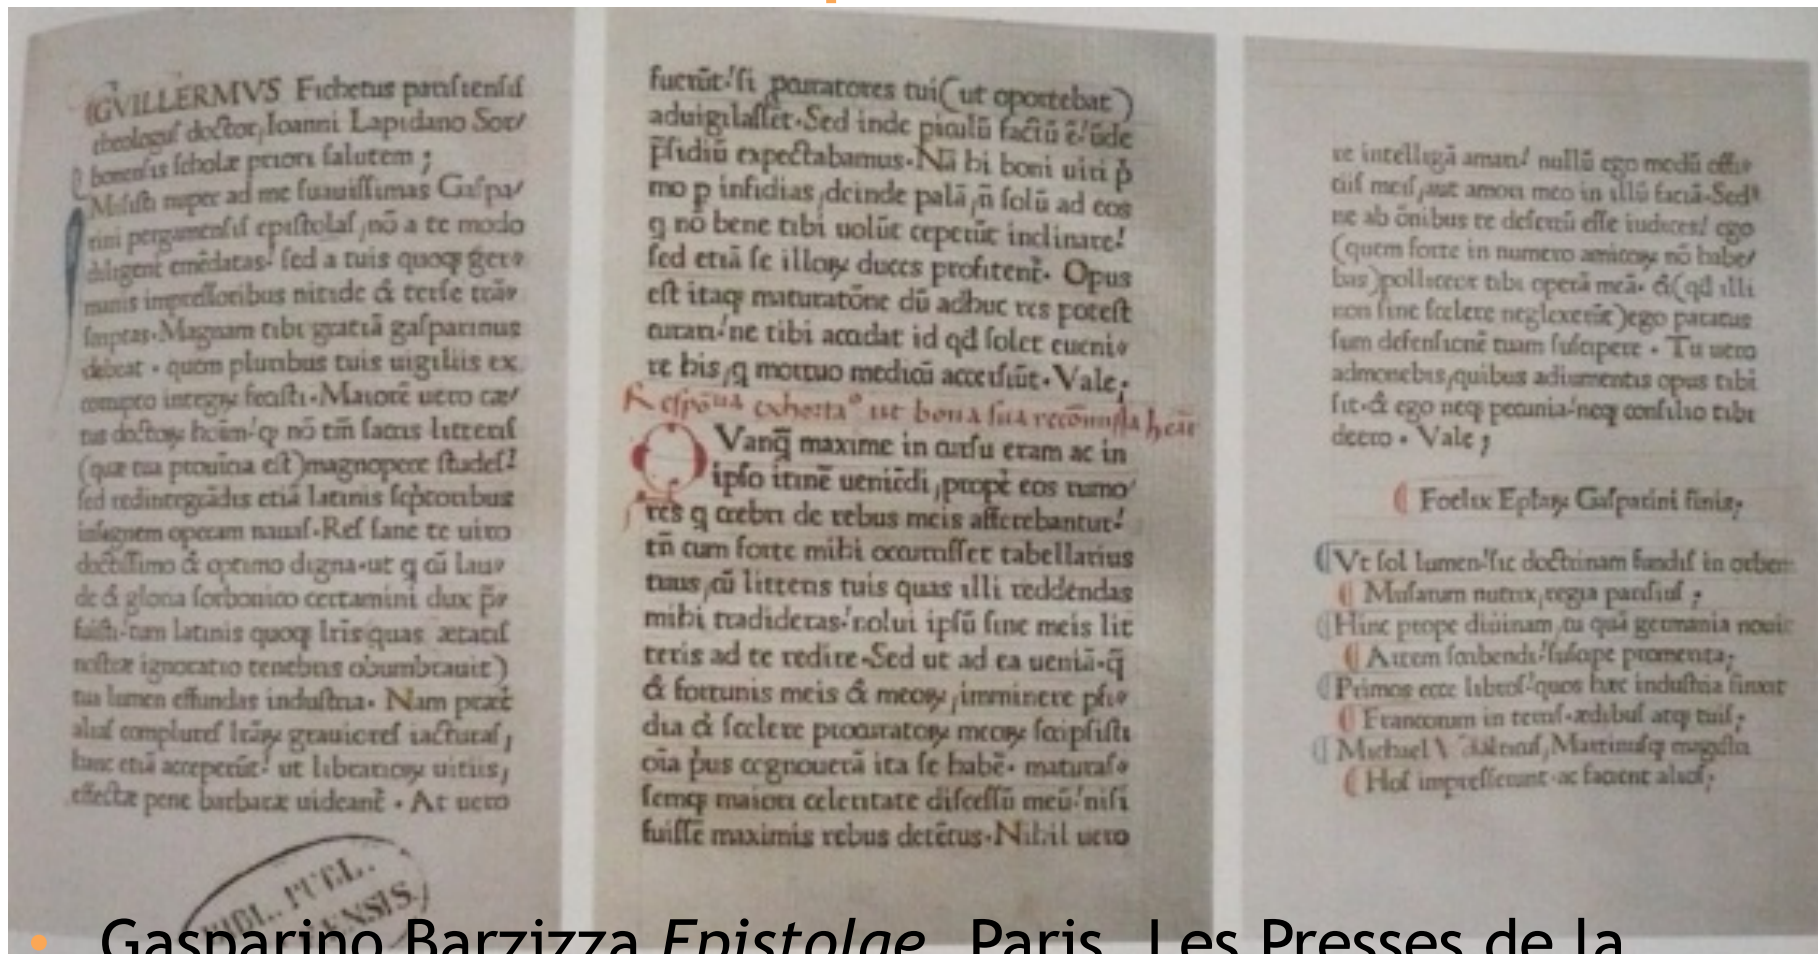 GVILLERMVS Fichetus parisiensis
theologus doctor, Ioanni Lapidano Sor/
bonensis scholæ priori salutem ;
Misisti nuper ad me suauissimas Gaspa/
rini pergamensis epistolas, nō a te modo
diligent emēdatas! sed a tuis quoqꝫ ger/
manis impressoribus nitide & terse trās/
Magnam tibi gratiā gasparinus
debeat . quem pluribus tuis uigiliis ex
corrupto integrꝝ fecisti. Maiorē uero cæ/
tus doctoꝝ hoīm! q nō tm̄ sacris litteris
(quæ tua prouīcia est) magnopere studes!
sed redintegrādis etiā latinis scptoribus
insignem operam nauas. Res sane te uiro
doctissimo & optimo digna. ut q cū lau/
de & gloria sorbonico certamini dux p̄/
fuisti. tum latinis quoqꝫ lris quas ætatis
nostræ ignoratio tenebris obumbrauit)
tua lumen effundas industria. Nam præt
alias complures lrāꝝ grauiores iacturas,
hanc etiā acceperūt! ut librarioꝝ uitiis,
effectæ pene barbaræ uideant̄ . At uero
BIBL. PUBL.
fuerūt! si parratores tui (ut oportebat)
aduigilasset. Sed inde piculū factū ē! ūde
p̄sidiū expectabamus. Nā hi boni uiri p̄
mo p insidias, deinde palā, n̄ solū ad eos
q nō bene tibi uolūt ceperūt inclinare!
sed etiā se illoꝝ duces profitent̄. Opus
est itaqꝫ maturatōne dū adhuc res potest
curari! ne tibi accidat id qd solet eueni/
re his, q mortuo medicū accersiūt. Vale;
Vanq̄ maxime in cursu eram ac in
ipso itinē ueniēdi, propt̄ eos rumo/
res q crebri de rebus meis afferebantur!
tn̄ cum forte mihi occurrisset tabellarius
tuus, cū litteris tuis quas illi reddendas
mihi tradideras! nolui ipsū sine meis lit
teris ad te redire. Sed ut ad ea ueniā. q̄
& fortunis meis & meoꝝ, imminere psi/
dia & scelere procuratoꝝ meoꝝ scripsisti
oīa prius cognouerā ita se habē. maturas/
semqꝫ maiori celeritate discessū meū! nisi
fuissē maximis rebus detētus. Nihil uero
re intelligā amari! nullū ego modū offi/
ciis meis, aut amori meo in illū faciā. Sed
ne ab ōnibus te desertū esse iudices! ego
(quem forte in numero amicoꝝ nō habe/
bas) polliceor tibi operā meā. & (qd illi
non sine scelere neglexerūt) ego paratus
sum defensionē tuam suscipere . Tu uero
admonebis, quibus adiumentis opus tibi
sit. & ego neqꝫ pecunia! neqꝫ consilio tibi
deero . Vale ;
Foelix Eplaꝝ Gasparini finis;
Vt sol lumen! sic doctrinam fundis in orbem
Musarum nutrix, regia parisius ;
Hinc prope diuinam, tu quā germania nouit
Artem scribendi! suscipe promerita;
Primos ecce libros! quos hæc industria finxit
Francorum in terris. ædibus atqꝫ tuis;
Michael Martinusqꝫ magistri
Hos impresserunt. ac facient alios;
Gasparino Barzizza Epistolae, Paris, Les Presses de la